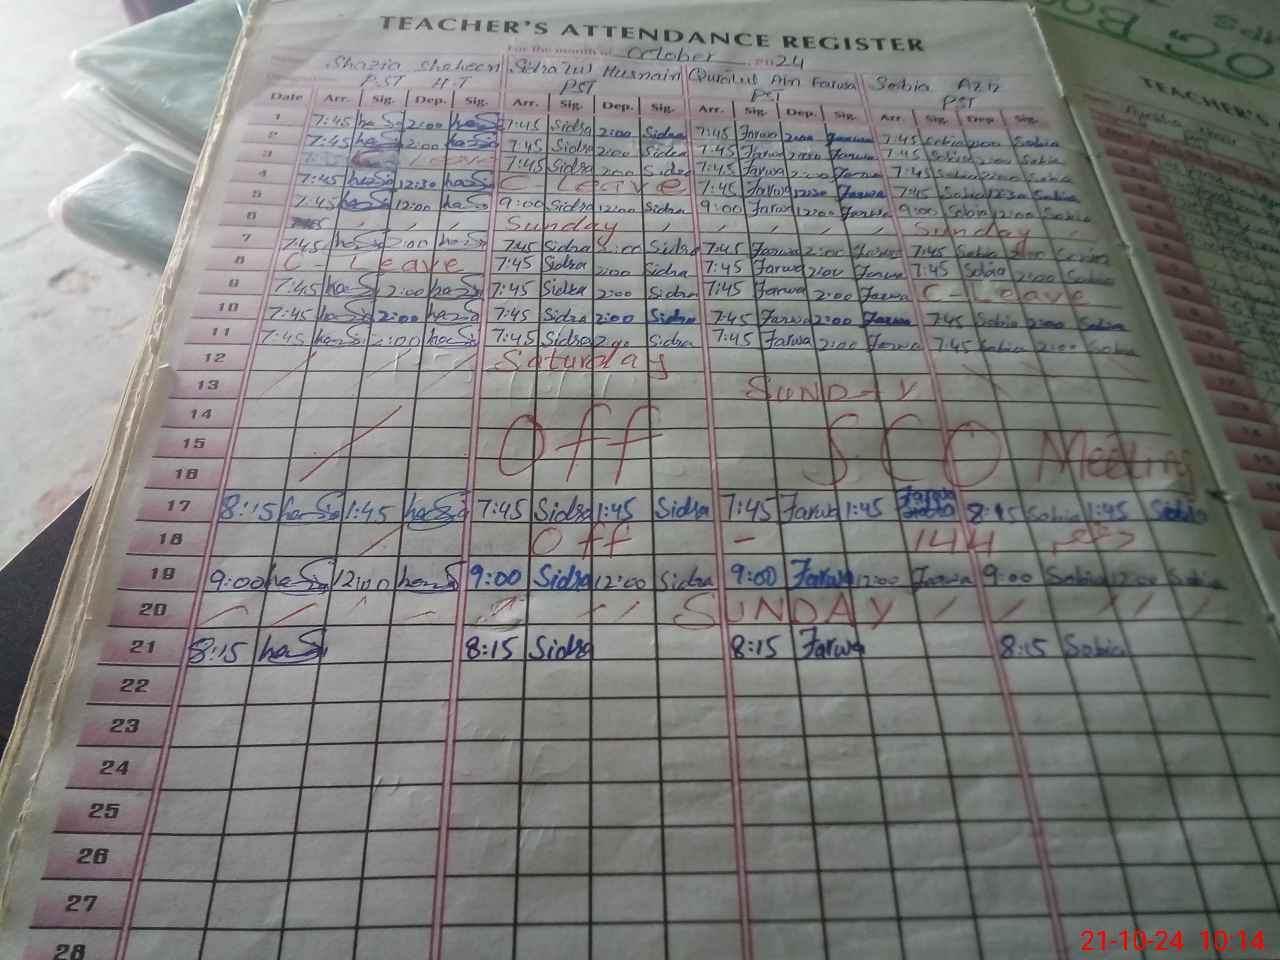 TEACHER'S ATTENDANCE REGISTER
For the month of October 2024
Shazia shaheen Sidra tul Husnain Quratul Ain Farwa Sobia Aziz
PST H.T PST PST PST
Date Arr. Sig. Dep. Sig. Arr. Sig. Dep. Sig. Arr. Sig. Dep. Sig. Arr. Sig. Dep. Sig.
1 7:45 2:00 7:45 Sidra 2:00 Sidra 7:45 Farwa 2:00 Farwa 7:45 Sobia 2:00 Sobia
2 7:45 2:00 7:45 Sidra 2:00 Sidra 7:45 Farwa 2:00 Farwa 7:45 Sobia 2:00 Sobia
3 7:45 Sidra 2:00 Sidra 7:45 Farwa 2:00 Farwa 7:45 Sobia 2:00 Sobia
4 7:45 12:30 C Leave 7:45 Farwa 12:30 Farwa 7:45 Sobia 12:30 Sobia
5 7:45 12:00 9:00 Sidra 12:00 Sidra 9:00 Farwa 12:00 Farwa 9:00 Sobia 12:00 Sobia
6 Sunday Sunday
7 7:45 2:00 7:45 Sidra 2:00 Sidra 7:45 Farwa 2:00 Farwa 7:45 Sobia 2:00 Sobia
8 C - Leave 7:45 Sidra 2:00 Sidra 7:45 Farwa 2:00 Farwa 7:45 Sobia 2:00 Sobia
9 7:45 2:00 7:45 Sidra 2:00 Sidra 7:45 Farwa 2:00 Farwa C - Leave
10 7:45 2:00 7:45 Sidra 2:00 Sidra 7:45 Farwa 2:00 Farwa 7:45 Sobia 2:00 Sobia
11 7:45 2:00 7:45 Sidra 2:00 Sidra 7:45 Farwa 2:00 Farwa 7:45 Sobia 2:00 Sobia
12 Saturday
13 SUNDAY
14
15 Off SCO Meeting
16
17 8:15 1:45 7:45 Sidra 1:45 Sidra 7:45 Farwa 1:45 8:15 Sobia 1:45 Sobia
18 Off - 144
19 9:00 12:00 9:00 Sidra 12:00 Sidra 9:00 Farwa 12:00 Farwa 9:00 Sobia 12:00 Sobia
20 SUNDAY
21 8:15 8:15 Sidra 8:15 Farwa 8:15 Sobia
22
23
24
25
26
27
28
TEACHER'S
21-10-24 10:14